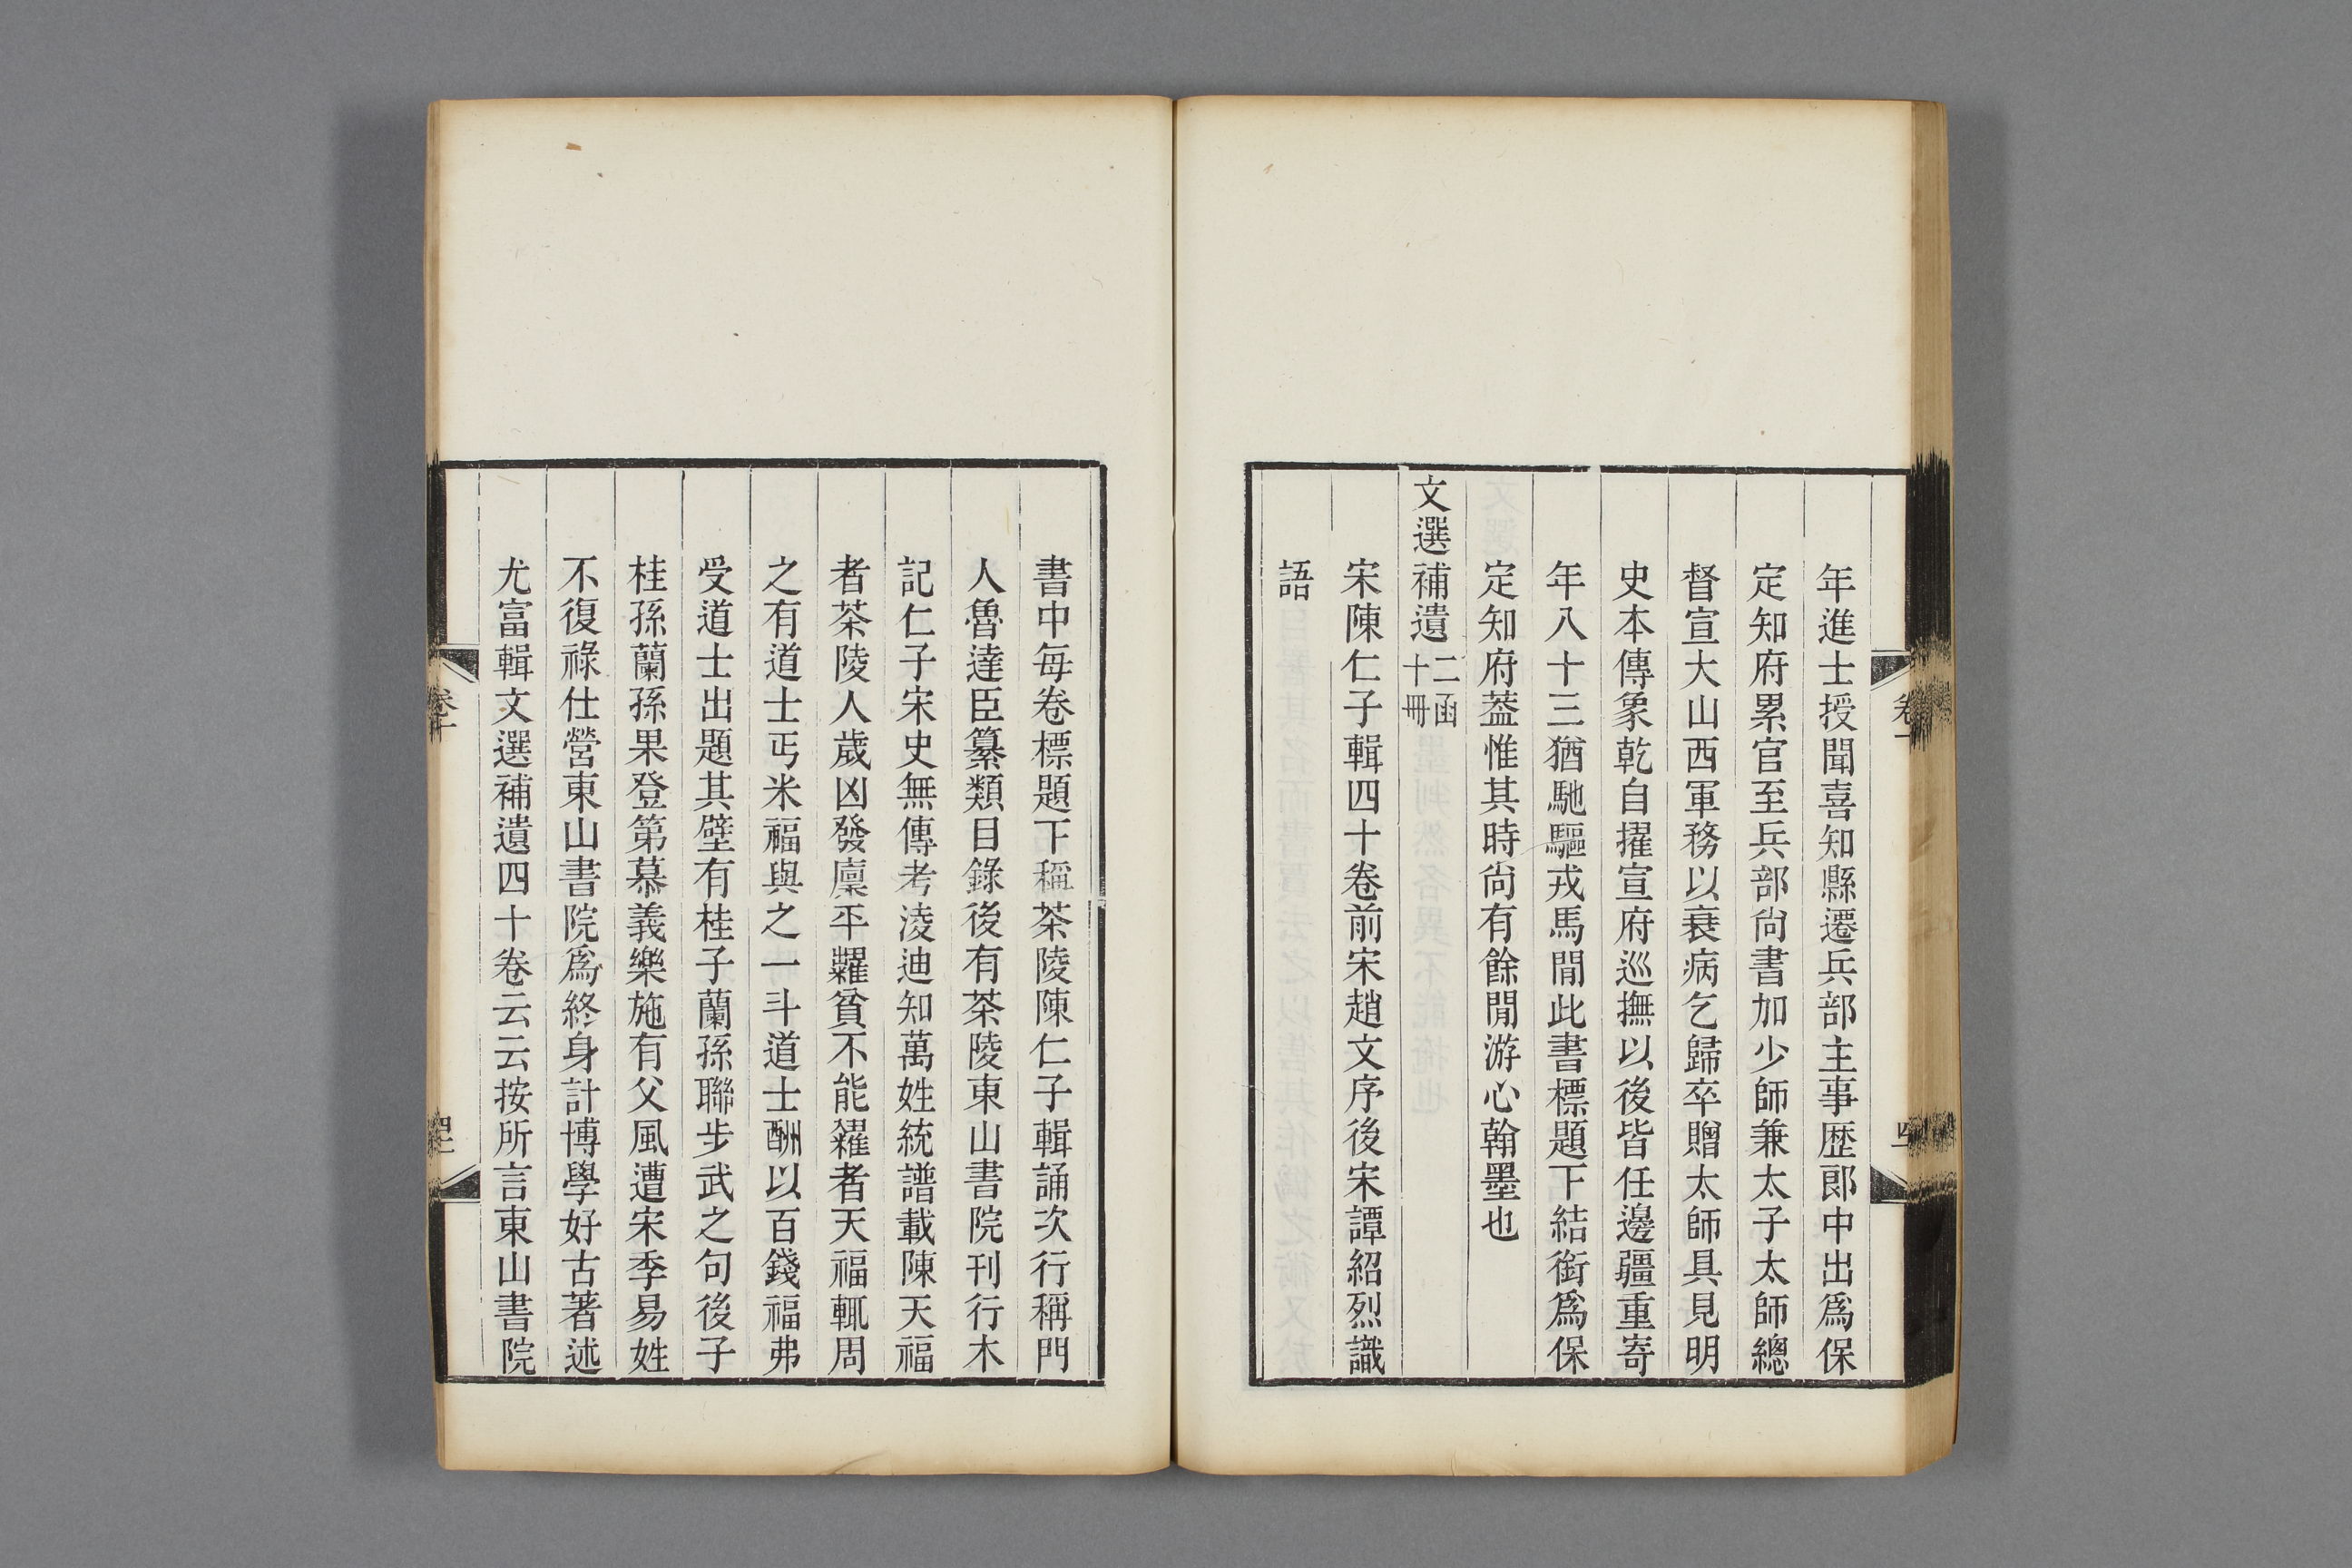 年進士授聞喜知縣遷兵部主事歷郎中出爲保
定知府累官至兵部尙書加少師兼太子太師總
督宣大山西軍務以衰病乞歸卒贈太師具見明
史本傳象乾自擢宣府巡撫以後皆任邊疆重寄
年八十三猶馳驅戎馬閒此書標題下結銜爲保
定知府葢惟其時尙有餘閒游心翰墨也
文選補遺二函十冊
宋陳仁子輯四十卷前宋趙文序後宋譚紹烈識
語
書中每卷標題下稱茶陵陳仁子輯誦次行稱門
人魯達臣纂類目錄後有茶陵東山書院刊行木
記仁子宋史無傳考淩迪知萬姓統譜載陳天福
者茶陵人歲凶發廩平糶貧不能糴者天福輒周
之有道士丐米福與之一斗道士酬以百錢福弗
受道士出題其壁有桂子蘭孫聯步武之句後子
桂孫蘭孫果登第慕義樂施有父風遭宋季易姓
不復祿仕營東山書院爲終身計博學好古著述
尤富輯文選補遺四十卷云云按所言東山書院